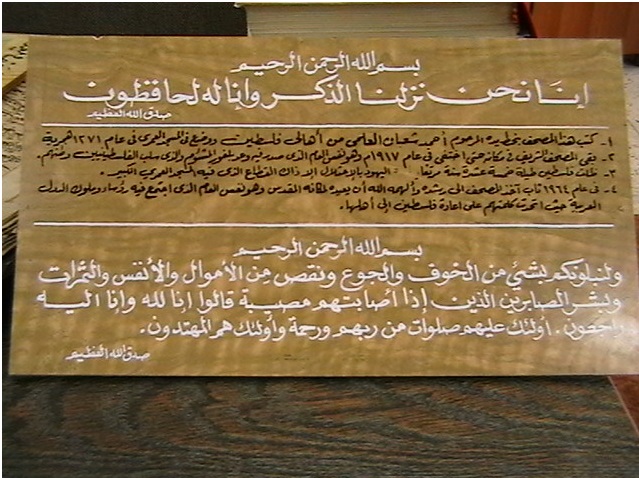 بسم الله الرحمن الرحيم
إنا نحن نزلنا الذكر وإنا له لحافظون
صدق الله العظيم
١- كتب هذا المصحف بخط يده المرحوم أحمد شعبان العلمي من أهالي فلسطين ووضع في المسجد العمري في عام ١٢٧١ هجرية
٢- بقي المصحف الشريف في مكانه حتى اختفى في عام ١٩١٧م وهو نفس العام الذي صدر فيه وعد بلفور المشئوم والذي سلب الفلسطينيين وطنهم.
٣- ظلت فلسطين طيلة خمسة عشرة سنة اليهود بالإحتلال إلا ذاك القطاع الذي فيه المسجد العمري الكبير.
٤- في عام ١٩٦٤ تاب آخذ المصحف إلى رشده وألهمه الله أن يعيده لمكانه المقدس وهو نفس العام الذي اجتمع فيه رؤساء وملوك الدول
العربية حيث اتحدت كلمتهم على إعادة فلسطين إلى أهلها.
بسم الله الرحمن الرحيم
ولنبلونكم بشئ من الخوف والجوع ونقص من الأموال والأنفس والثمرات
وبشر الصابرين الذين إذا أصابتهم مصيبة قالوا إنا لله وإنا إليه
راجعون. أولئك عليهم صلوات من ربهم ورحمة وأولئك هم المهتدون.
صدق الله العظيم